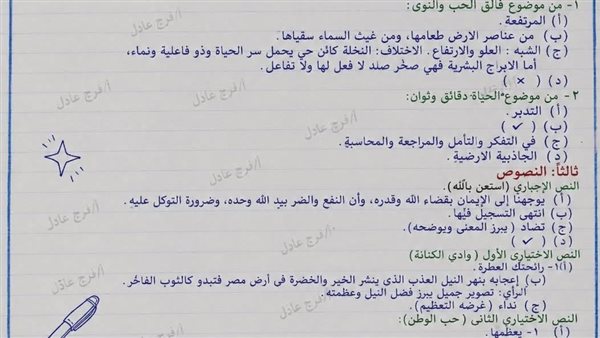 ١- من موضوع فالق الحب والنوى:
(أ) المرتفعة.
(ب) من عناصر الارض طعامها، ومن غيث السماء سقياها.
(ج) الشبه: العلو والارتفاع. الاختلاف: النخلة كائن حي يحمل سر الحياة وذو فاعلية ونماء، أما الابراج البشرية فهي صخر صلد لا فعل لها ولا تفاعل.
(د) ( × )
٢- من موضوع الحياة دقائق وثوان:
(أ) التدبر.
(ب) ( ✓ )
(ج) في التفكر والتأمل والمراجعة والمحاسبة.
(د) الجاذبية الارضية.
ثالثاً: النصوص
النص الإجباري (استعن بالله).
(أ) يوجهنا إلى الإيمان بقضاء الله وقدره، وأن النفع والضر بيد الله وحده، وضرورة التوكل عليه.
(ب) انتهى التسجيل فيها.
(ج) تضاد (يبرز المعنى ويوضحه).
(د) ( ✓ )
النص الاختياري الأول (وادي الكنانة)
(أ)١- رائحتك العطرة.
(ب) إعجابه بنهر النيل العذب الذي ينشر الخير والخضرة في أرض مصر فتبدو كالثوب الفاخر.
الرأي: تصوير جميل يبرز فضل النيل وعظمته.
(ج) نداء (غرضه التعظيم).
النص الاختياري الثاني (حب الوطن):
(أ) ١- يعظمها.
أ/فرج عادل
أ/فرج عادل
أ/فرج عادل
أ/فرج عادل
أ/فرج عادل
أ/فرج عادل
أ/فرج عادل
أ/فرج عادل
أ/فرج عادل
أ/فرج عادل